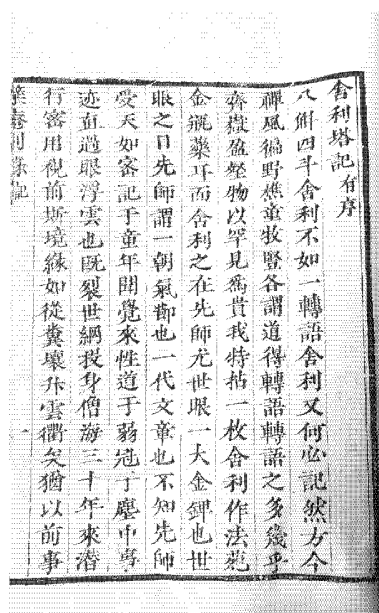 舍利塔記有序
八斛四斗舍利不如一轉語舍利又何必記然方今
禪風徧野樵童牧豎各謂道得轉語轉語之多幾乎
齊嶽盈壑物以罕見為貴我特拈一枚舍利作法苑
金瓶藥耳而舍利之在先師尤世眼一大金錍也世
眼之目先師謂一朝氣節也一代文章也不知先師
受天如密記于童年開覺來性道于弱冠了塵中事
迹直過眼浮雲也既裂世網投身僧海三十年來潛
行密用視前斯境緣如從糞壤升雲衢矣猶以前事
舍利
記
一